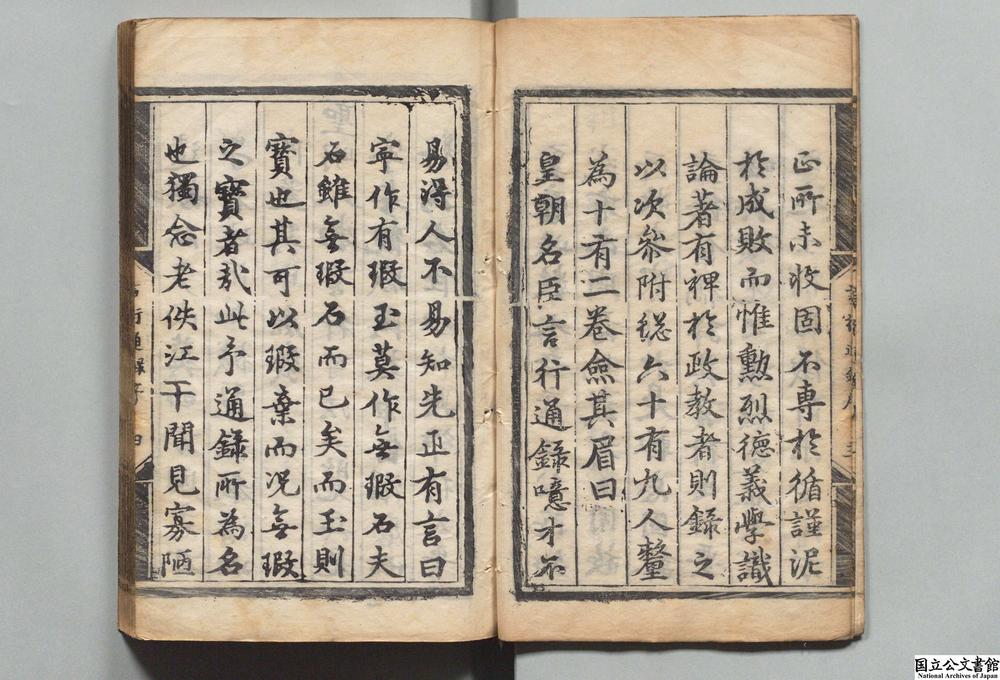 正所未收固不專於循謹泥
於成敗而惟勲烈德義學識
論著有裨於政教者則錄之
以次叅附総六十有九人釐
為十有二卷僉其眉曰
皇朝名臣言行通錄噫才不
易得人不易知先正有言曰
寧作有瑕玉莫作無瑕石夫
石雖無瑕石而已矣而玉則
寳也其可以瑕棄而况無瑕
之寳者哉此予通錄所為名
也獨念老佚江干聞見寡陋
国立公文書館
National Archives of Japan